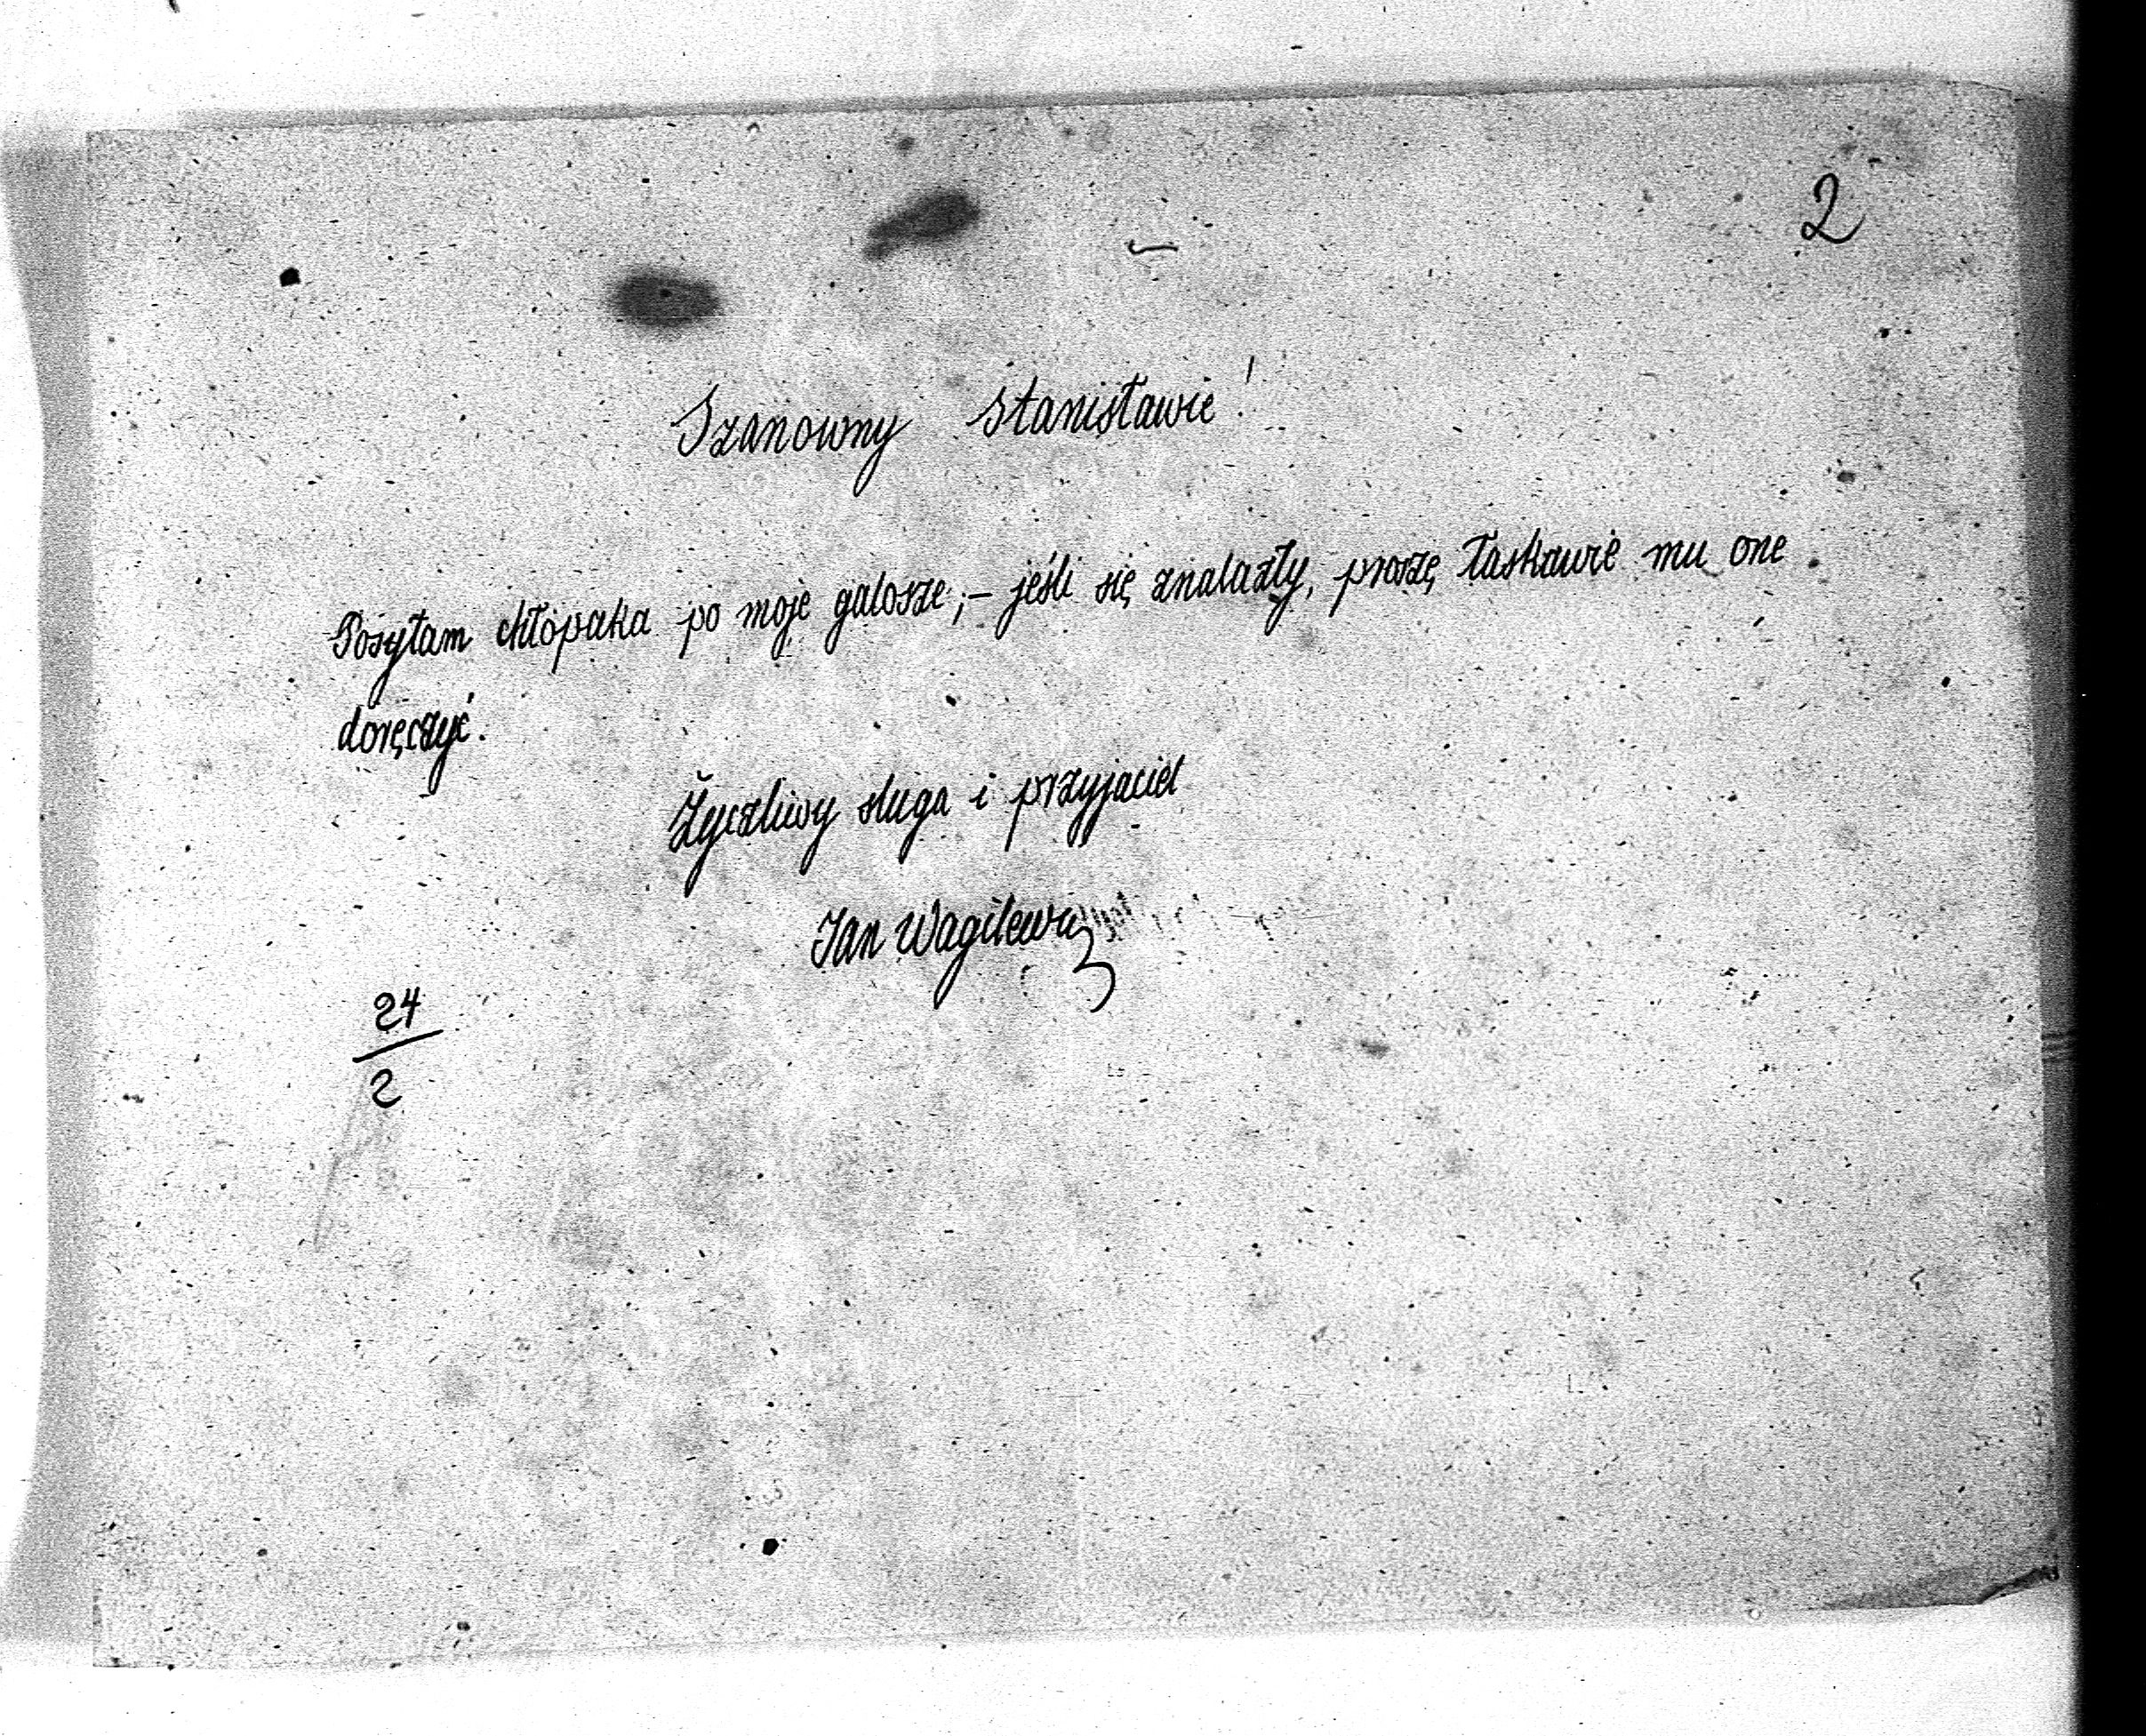 2
Szanowny Stanisławie!
Posyłam chłopaka po moje galosze;— jeśli się znalazły, proszę łaskawie mu one
doręczyć.
Życzliwy sługa i przyjaciel
Jan Wagilewicz
24
2